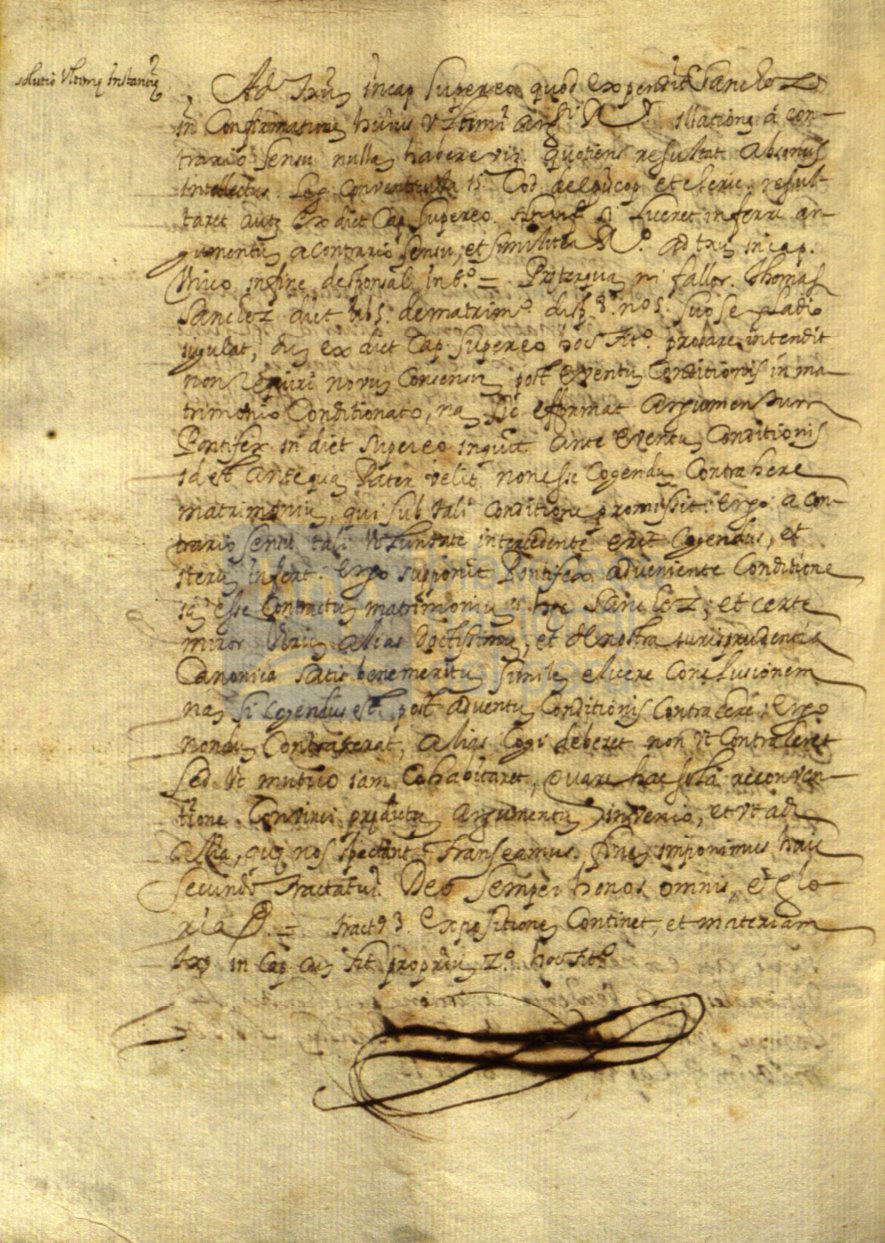 solutio Ultimę Instantię
Ad Txtũ in cap. super eo quod expendit Sanchez
in Confirmationẽ huius Ultimi arg.ti R.r illationẽ à con-
trario sensu nullã habere viz quotiens resultat absonus
Intellectus. Leg. Conventicula 15. Cod. de episcop. et cleric. resul-
taret autẽ ex dict. Cap. super eo. si liceret inferri ar-
gumentũ a contrario sensu, et similiter R.r ad txtũ in cap.
Unico in fine desponsal. in 6.º = Preterquã ni fallor. Thomas
Sanchez dict. lib. 5. de matrim.º disp. 8. nº 5. suo se gladio
iugulat, dũ ex dict. Cap. super eo hoc tit.º probare intendit
non requiri novũ Consensũ post eventũ Conditionis in ma-
trimonio Conditionato, nã sic efformat argumentum
Pontifex in dict. super eo inquit ante eventũ Conditionis
id est antequã Pater velit non esse Cogendũ Contrahere
matrimoniũ, qui sub tali Conditione promissit: Ergo a con-
trario sensu tali Voluntate intercedente erit Cogendus, et
iterũ infert: Ergo supponit Pontifex adveniente Conditione
iã esse Contractũ matrimoniũ hec Sanchez; et certe
miror Virũ alias doctissimũ, et de nostra iurisprudentia
Canonica satis benemeritũ similẽ elicere Conclusionem
nã si Cogendus est post adventũ Conditionis Contrahere; Ergo
nondũ Contraxerat, alias Cogi deberet non Ut Contraheret
sed Ut mutuo iam Cohabitaret, quare hac sola reconven-
tione Convinci prędictũ argumentũ invenio, et Ut ad
alia, quę nos spectant transeamus, finẽ imponimus huic
secundo tractatui. Deo semper honos omnis, et glo-
ria = tract. 3. expositionẽ Continet, et materiam
txtũ in Cap. tit. propriũ 2.º hoc tit.º